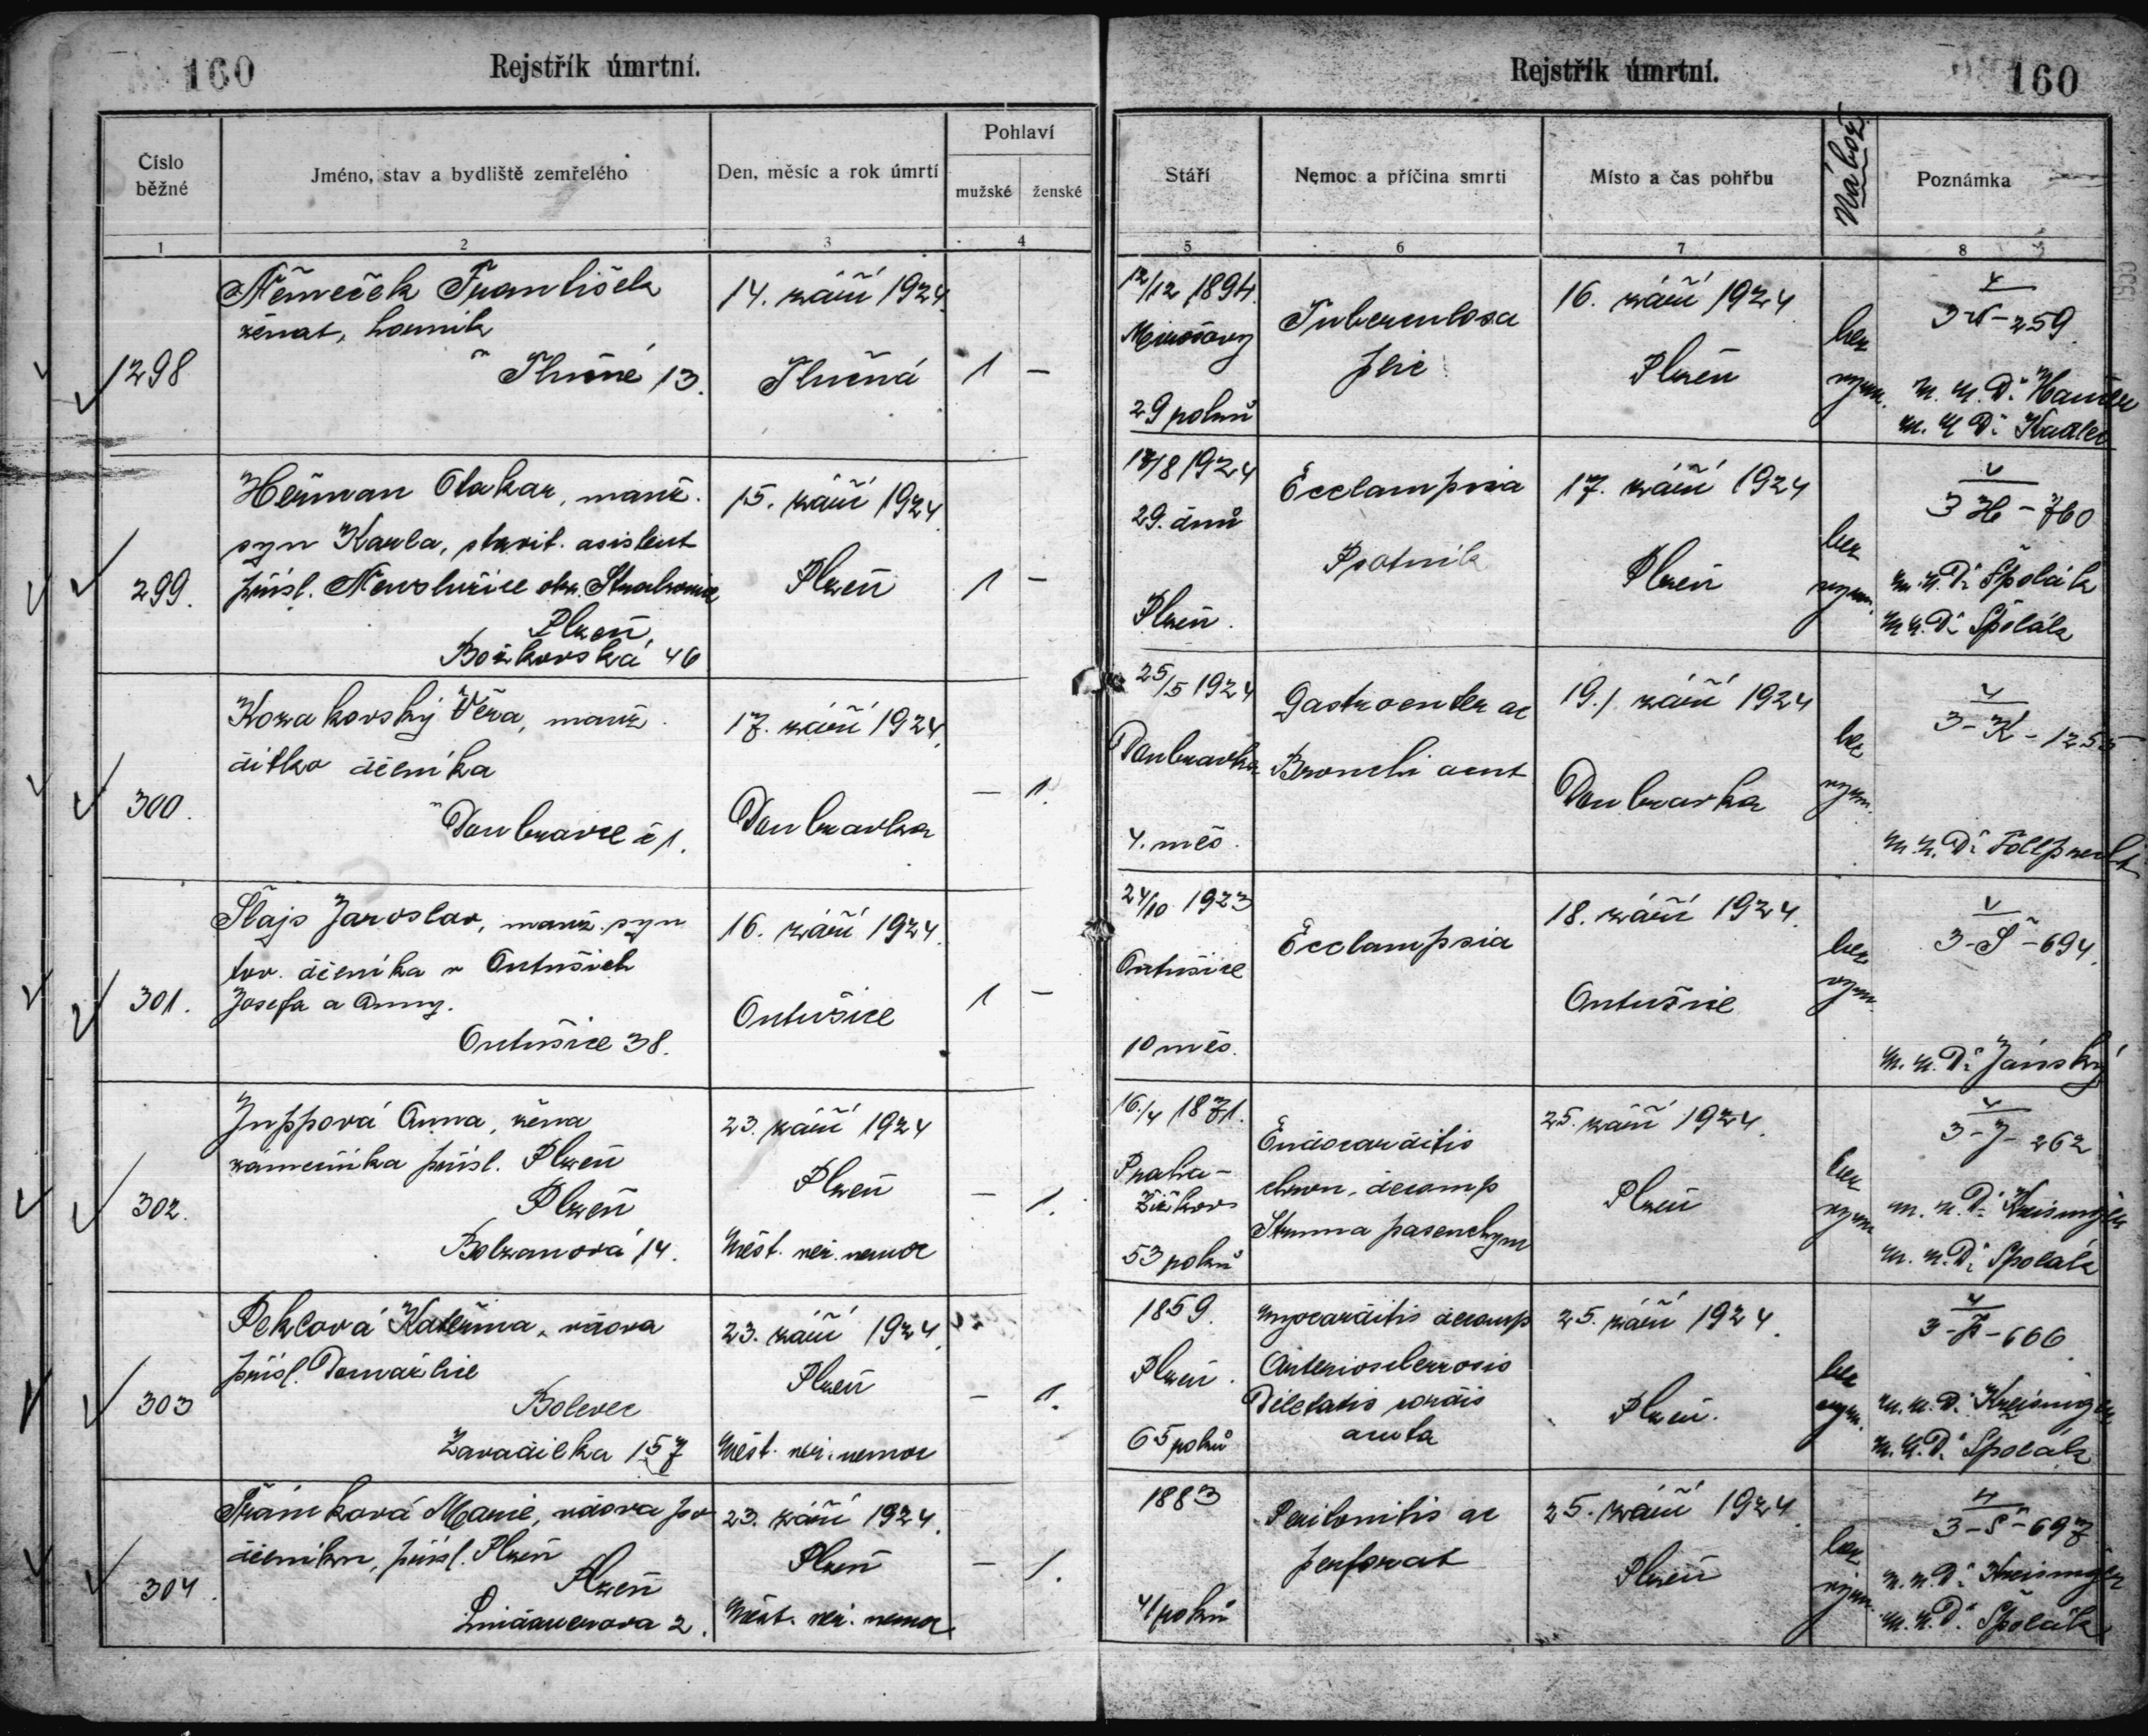 160
Rejstřík úmrtní.
Číslo běžné
Jméno, stav a bydliště zemřelého
Den, měsíc a rok úmrtí
Pohlaví
mužské
ženské
1
2
3
4
298
Němeček František
ženat, horník
Tlučné 13.
14. září 1924
Tlučná
1 –
299.
Heřman Otakar, manž.
syn Karla, stavit. asistent
přísl. okr. Strakonice
Plzeň,
Božkovská 46
15. září 1924
Plzeň
1 –
300.
Kozakovský Věra, manž.
dítko dělníka
Doubravce č 1.
17. září 1924
Doubravka
– 1.
301.
Šlajs Jaroslav, manž. syn
tov. dělníka v
Josefa a Anny.
38.
16. září 1924
1 –
302.
Juppová Anna, žena
zámečníka přísl. Plzeň
Plzeň
Bolzanová 14.
23. září 1924
Plzeň
Měst. veř. nemoc
– 1.
303
Peklová Kateřina, vdova
přísl. Domažlice
Bolevec
Zavadilka 157
23. září 1924
Plzeň
Měst. veř. nemoc
– 1.
304
Marie, vdova po
dělníku, přísl. Plzeň
Plzeň
Lindauerova 2.
23. září 1924.
Plzeň
Měst. veř. nemoc
– 1.
Rejstřík úmrtní.
160
Stáří
Nemoc a příčina smrti
Místo a čas pohřbu
Nábož.
Poznámka
5
6
7
8
12/12 1894.
Mirošovy
29 roků
Tuberculosa
plic
16. září 1924
Plzeň
bez
vyzn.
3-N-259
M. U. Dr.
M. U. Dr. Kadlec
17/8 1924
29. dnů
Plzeň.
Ecclampsia
Psotník
17. září 1924
Plzeň
bez
vyzn.
3 H - 760
M. U. Dr. Špolák
M. U. Dr. Špolák
25/5 1924
Doubravka
4. měs.
Gastroenter ac
Bronchi acut
19./ září 1924
Doubravka
bez
vyzn.
3-K-1255
M. U. Dr.
24/10 1923
10 měs.
Ecclampsia
18. září 1924.
bez
vyzn.
3-Š-694
M. U. Dr. Jánský
16./4 1871.
Praha-
Žižkov
53 roků
Endocarditis
chron. decomp
Struma parenchym
25. září 1924.
Plzeň
bez
vyzn
3-J-262
M. U. Dr. Kreisinger
M. U. Dr. Špolák
1859.
Plzeň.
65 roků
Myocarditis decomp
Arteriosclerrosis
Diletatis cordis
acuta
25. září 1924.
Plzeň.
bez
vyzn.
3-P-666
M. U. Dr. Kreisinger
M. U. Dr. Špolák
1883
41 roků
Peritonitis ac
perforat
25. září 1924.
Plzeň
bez
vyzn.
3-Š-697
M. U. Dr. Kreisinger
M. U. Dr. Špolák